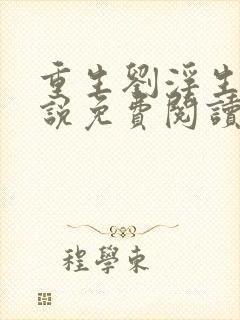 重生劉淫生
說免費閱讀
程學東